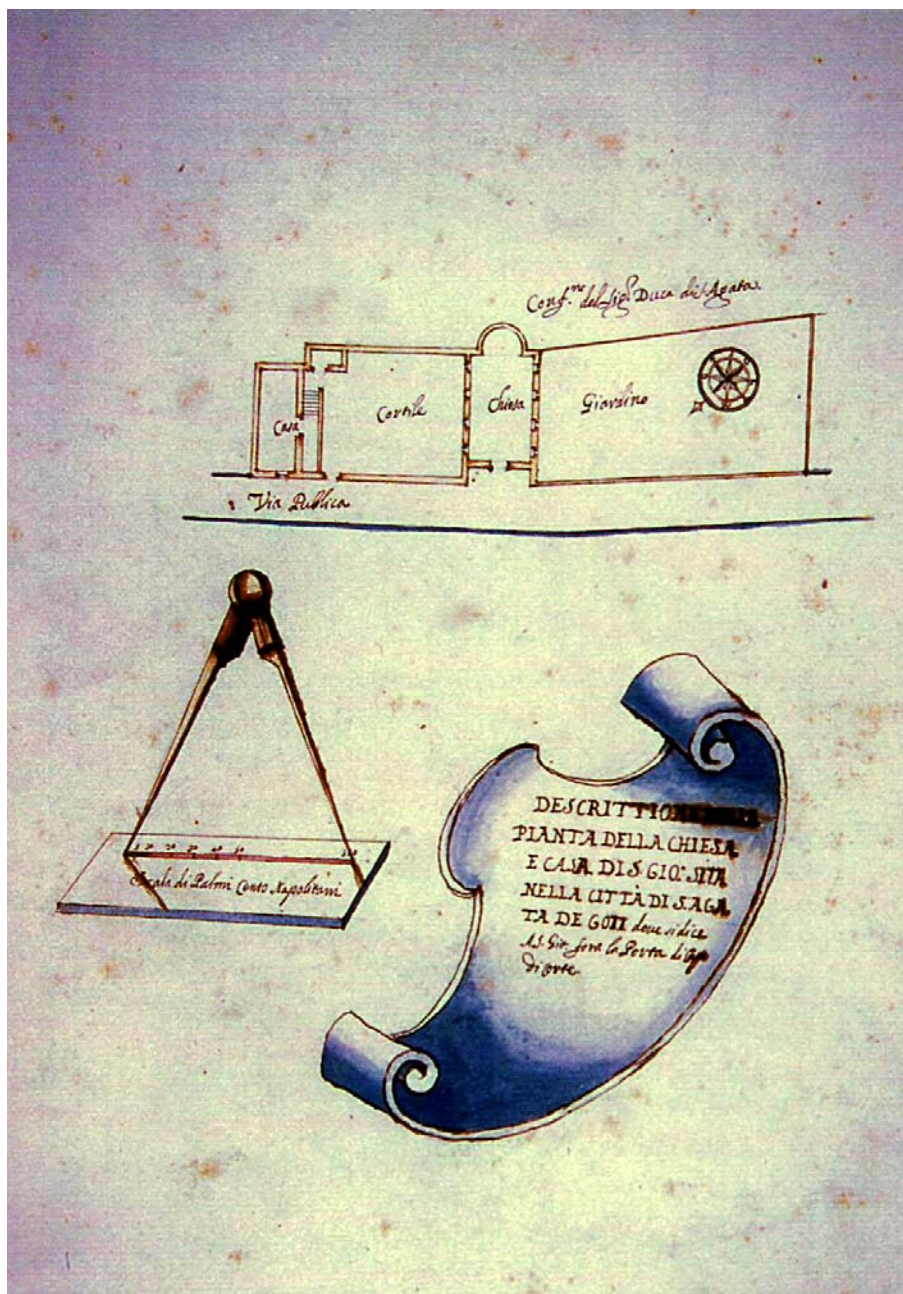 Conf.ne del Sig.r Duca di S. Agata
Casa
Cortile
Chiesa
Giardino
Via Publica
Scala di Palmi Cento Napolitani
DESCRITTIONE
PIANTA DELLA CHIESA
E CASA DI S. GIO: SITA
NELLA CITTÀ DI S. AGA
TA DE GOTI doue si dice
A S. Gio: fora la Porta di